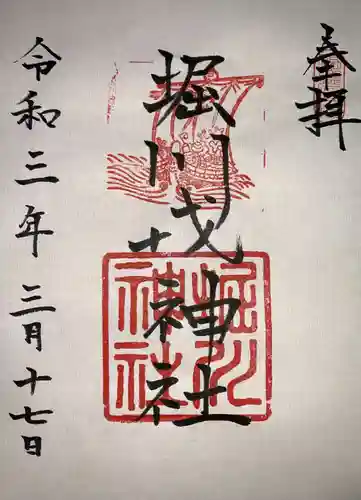 奉拝
堀川戎神社
令和三年三月十七日
堀川
神社